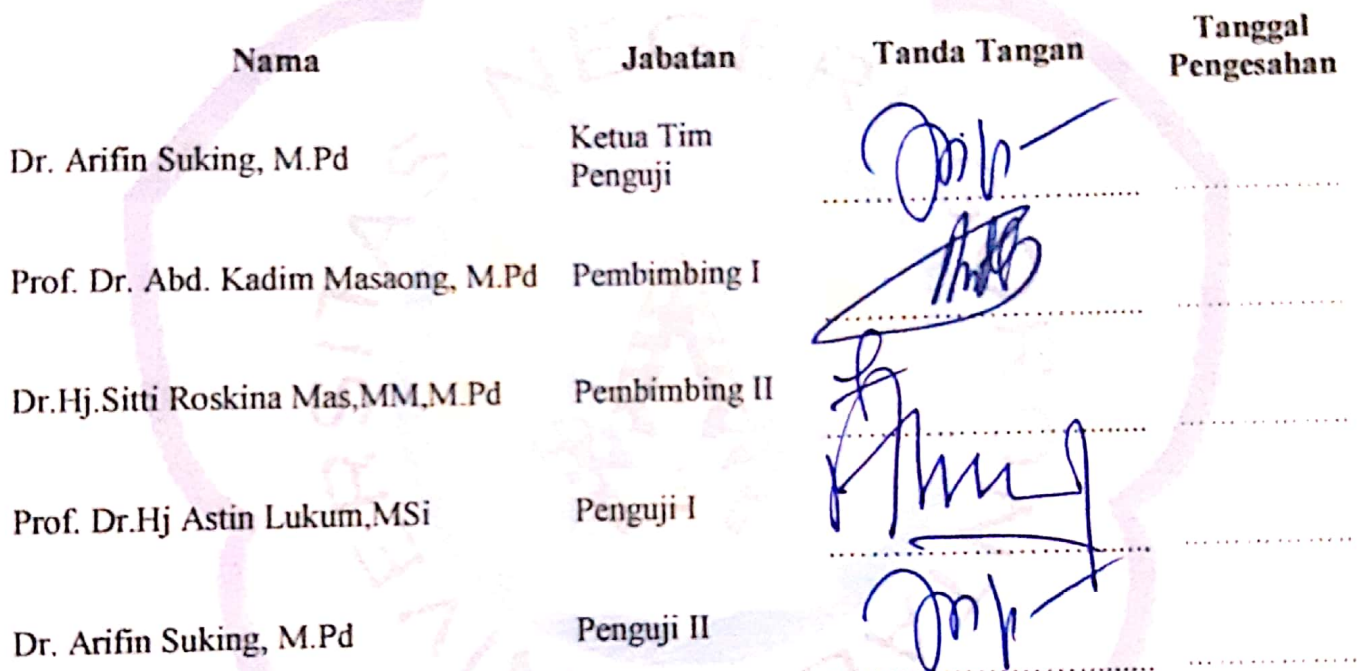 Nama Jabatan Tanda Tangan Tanggal
Pengesahan
Dr. Arifin Suking, M.Pd Ketua Tim
Penguji
Prof. Dr. Abd. Kadim Masaong, M.Pd Pembimbing I
Dr.Hj.Sitti Roskina Mas,MM,M.Pd Pembimbing II
Prof. Dr.Hj Astin Lukum,MSi Penguji I
Dr. Arifin Suking, M.Pd Penguji II